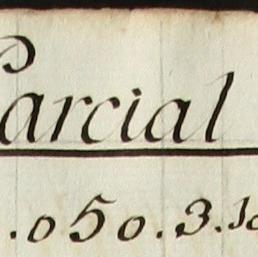 Parcial
.050.3.10